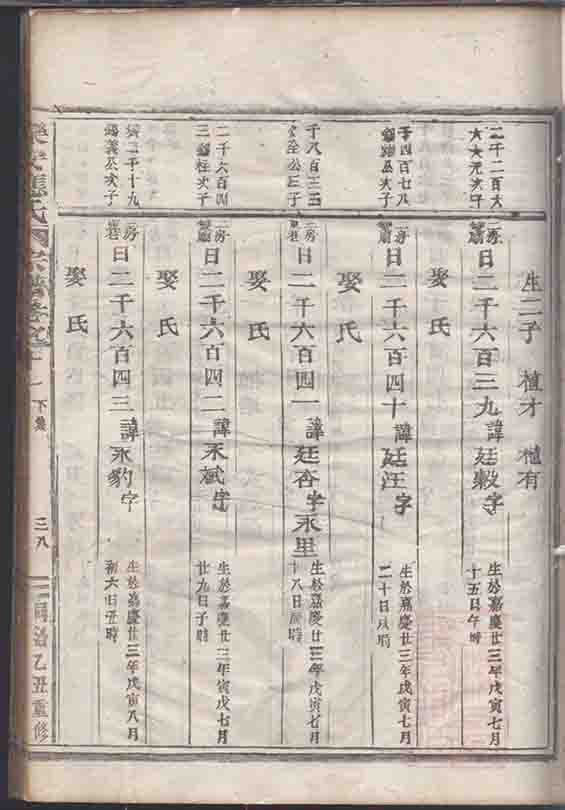 生二子 植才 植有
二千二百六
曰二千六百三九 諱廷穀 字
生於嘉慶廿三年戊寅七月
十五日午時
娶氏
千四百七八
曰二千六百四十 諱廷汪 字
生於嘉慶廿三年戊寅七月
二十日
娶氏
千八百三三
公三子
曰二千六百四一 諱廷杏 字永里
生於嘉慶廿三年戊寅七月
十八日辰時
娶氏
二千六百四
三 桂次子
曰二千六百四二 諱永斌 字
生於嘉慶廿三年寅戊七月
廿九日子時
娶氏
二千十九
義公次子
曰二千六百四三 諱永豹 字
生於嘉慶廿三年戊寅八月
初六日丑時
娶氏
下集
三八
同治乙丑重修